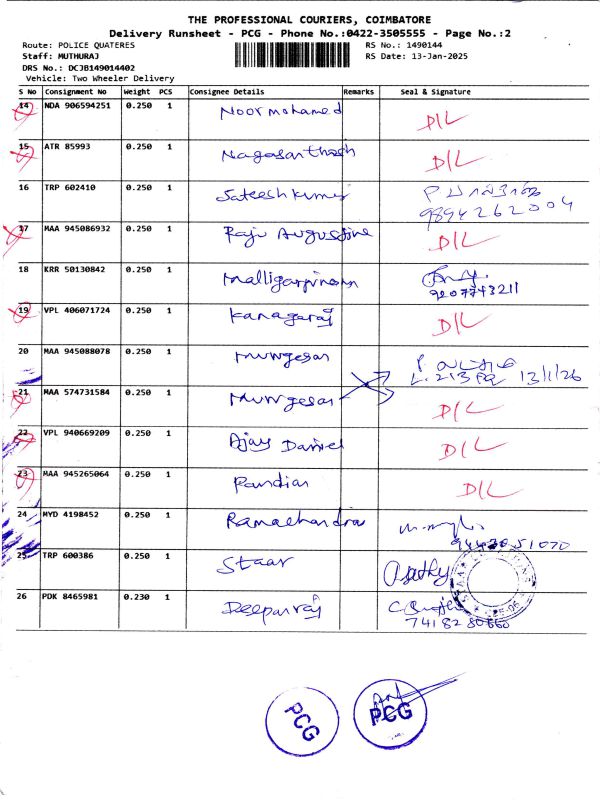 THE PROFESSIONAL COURIERS, COIMBATORE
Delivery Runsheet - PCG - Phone No.:0422-3505555 - Page No.:2
Route: POLICE QUATERES RS No.: 1490144
Staff: MUTHURAJ RS Date: 13-Jan-2025
DRS No.: DCJB149014402
Vehicle: Two Wheeler Delivery
S No Consignment No Weight PCS Consignee Details Remarks Seal & Signature
14 NDA 906594251 0.250 1 Noor mohamed D/L
15 ATR 85993 0.250 1 Nagasanthosh D/L
16 TRP 602410 0.250 1 Sateesh kumar
9894262004
17 MAA 945086932 0.250 1 Raju Augustine D/L
18 KRR 50130842 0.250 1
9207743211
19 VPL 406071724 0.250 1 Kanagaraj D/L
20 MAA 945088078 0.250 1 Murugesan
13/1/26
21 MAA 574731584 0.250 1 Murugesan D/L
22 VPL 940669209 0.250 1 Ajay Daniel D/L
23 MAA 945265064 0.250 1 Pandian D/L
24 MYD 4198452 0.250 1 Ramachandra
25 TRP 600386 0.250 1 Staar
26 PDK 8465981 0.230 1 Deepanraj
PCG
PCG